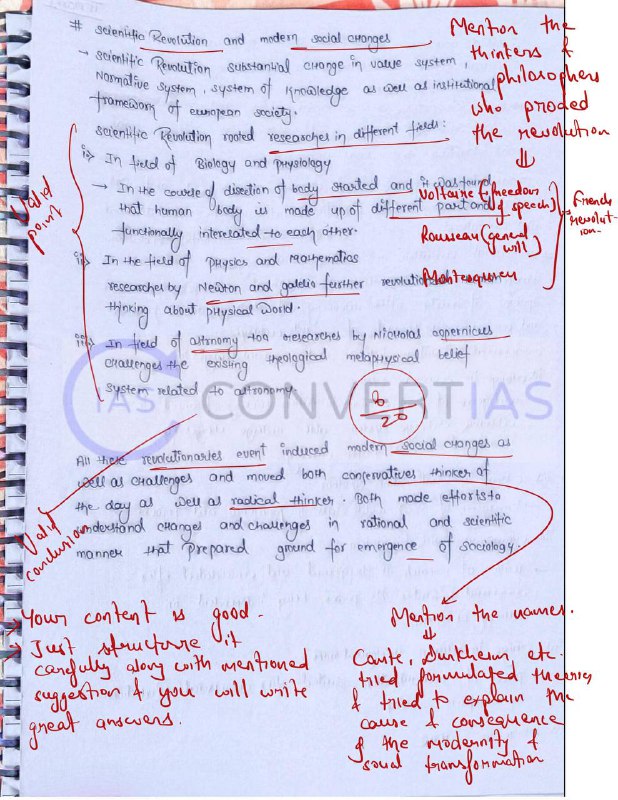 # scientific Revolution and modern social changes
→ scientific Revolution substantial change in value system,
Normative system, system of knowledge as well as institutional
framework of european society.
scientific Revolution rooted researches in different fields:
i> In field of Biology and physiology
→ In the course of disection of body started and it was found
that human body is made up of different part and
functionally interelated to each other.
ii> In the field of physics and Mathematics
researches by Newton and galelio further revolution
thinking about physical world.
iii> In field of astronomy too researches by Nicholas copernicus
challenges the existing theological metaphysical belief
system related to astronomy.
Mention the
thinkers &
philosophers
who proded
the revolution
⇓
Voltaire (freedom
of speech)
Rousseau (general
will)
French
revolut-
ion-
Valid
point
IAS CONVERTIAS
8
20
All these revolutionaries event induced modern social changes as
well as challenges and moved both conservatives thinker of
the day as well as radical thinker. Both made efforts to
understand changes and challenges in rational and scientific
manner that prepared ground for emergence of sociology.
Valid
conclusion
→ Your content is good.
→ Just structure it
carefully along with mentioned
suggestion & you will write
great answers.
Mention the names.
⇓
Comte, Durkheim etc.
tried formulated theories
& tried to explain the
cause & consequence
of the modernity &
social transformation